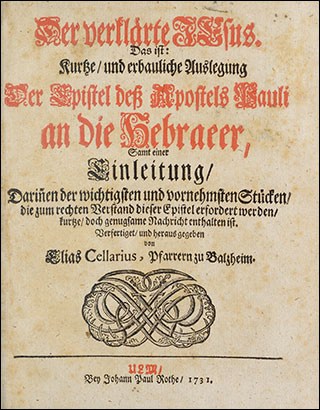 Der verklärte JEsus.
Das ist:
Kurtze/ und erbauliche Auslegung
Der Epistel deß Apostels Pauli
an die Hebraeer,
Samt einer
Einleitung/
Dariñen der wichtigsten und vornehmsten Stücken/
die zum rechten Verstand dieser Epistel erfordert werden/
kurtze/ doch genugsame Nachricht enthalten ist.
Verfertiget/ und heraus gegeben
von
Elias Cellarius, Pfarrern zu Balzheim.
ULM/
Bey Johann Paul Rothe/ 1731.